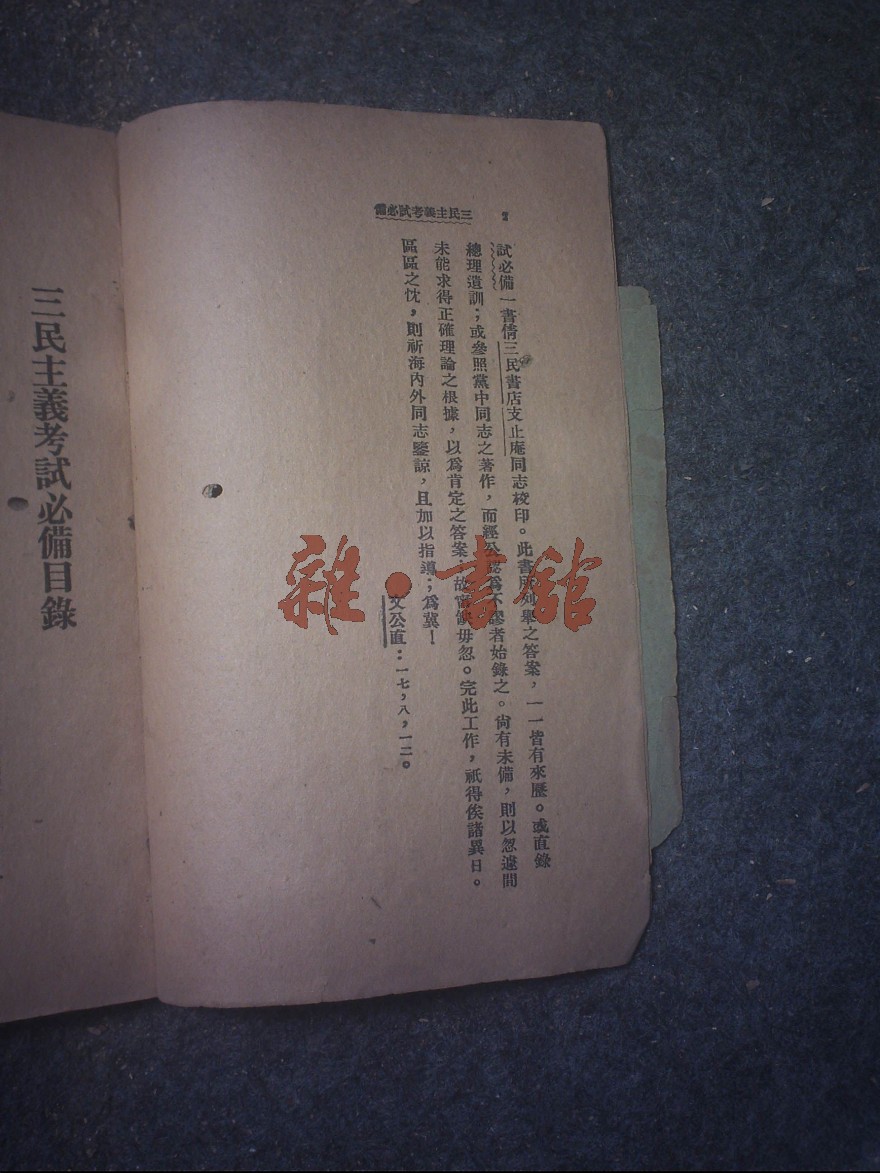 三民主義考試必備
2
試必備一書倩三民書店支止庵同志校印。此書所列舉之答案,一一皆有來歷。或直錄
總理遺訓;或參照黨中同志之著作,而經公認爲不謬者始錄之。尙有未備,則以怱遽間
未能求得正確理論之根據,以爲肯定之答案,故寧缺毋忽。完此工作,祇得俟諸異日。
區區之忱,則祈海內外同志鑒諒,且加以指導;爲冀!
文公直:一七,八,一二。
三民主義考試必備目錄
雜·書館